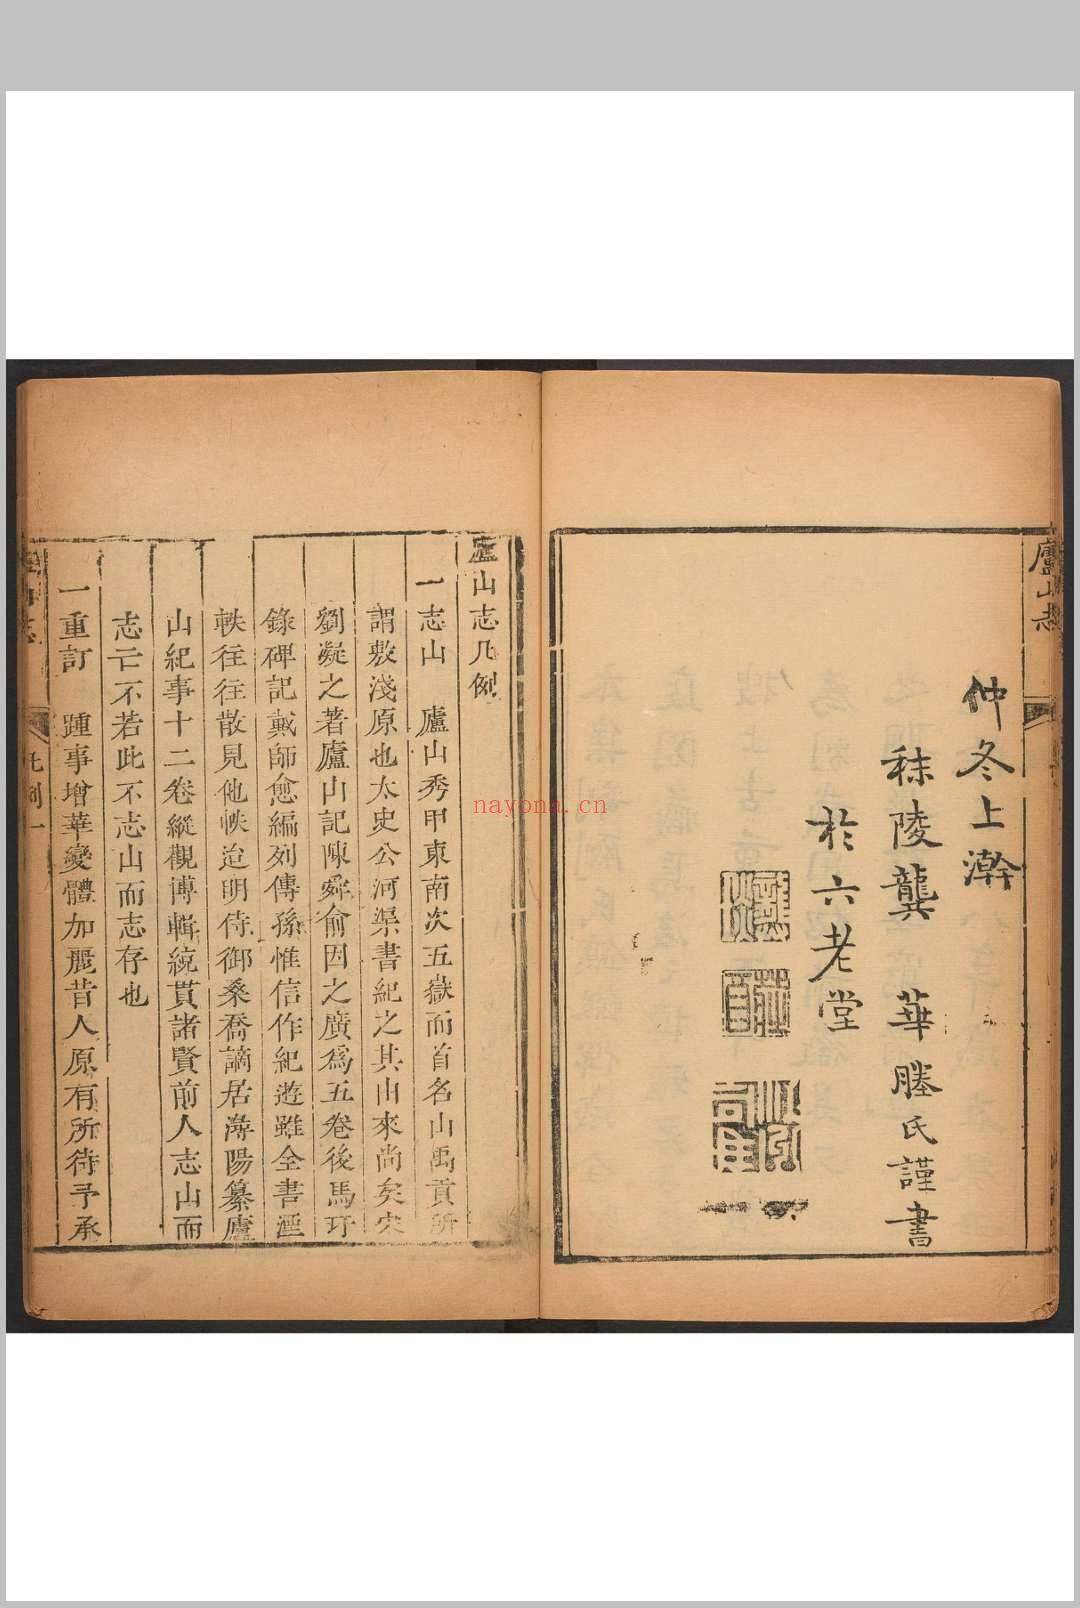 廬山志
仲冬上澣
秣陵龔華塍氏謹書
於六老堂
廬山志凡例
一志山 廬山秀甲東南次五嶽而首名山禹貢所
謂敷淺原也太史公河渠書紀之其由來尚矣宋
劉凝之著廬山記陳舜俞因之廣爲五卷後馬玗
錄碑記戴師愈編列傳孫惟信作紀遊雖全書湮
軼往往散見他帙迨明侍御桑喬謫居潯陽纂廬
山紀事十二卷縱觀博輯統貫諸賢前人志山而
志亡不若此不志山而志存也
一重訂 踵事增華變體加麗昔人原有所待予承
凡例一
nayona.cn